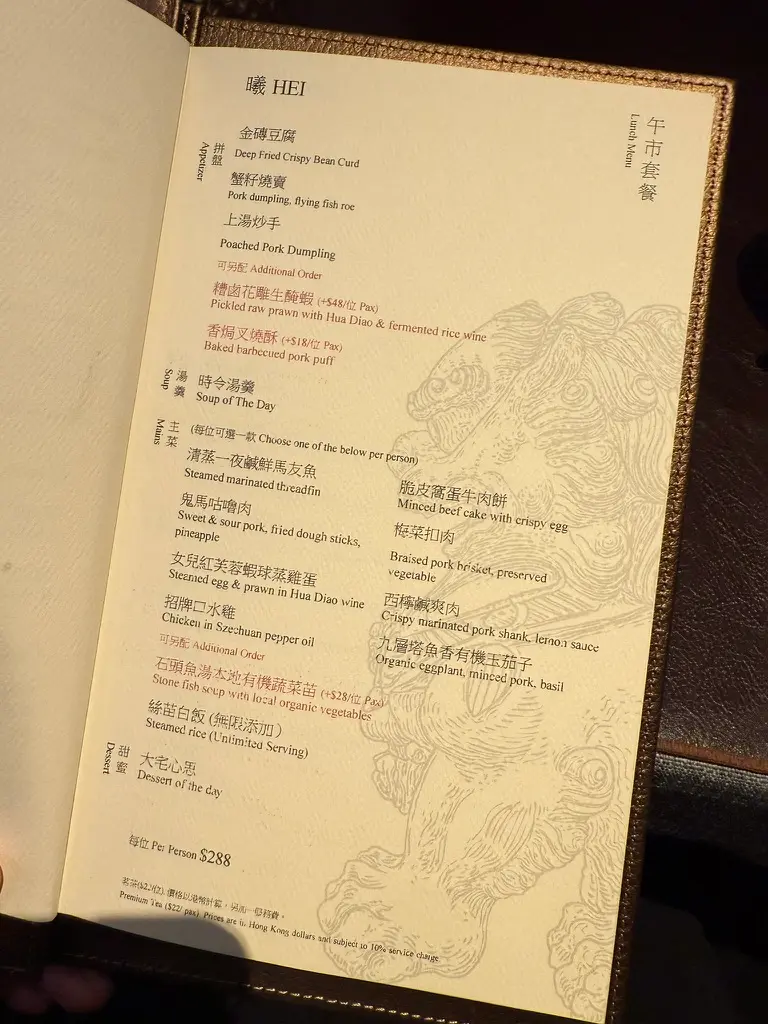 曦 HEI
午市套餐
Lunch Menu
拼盤
Appetizer
金磚豆腐
Deep Fried Crispy Bean Curd
蟹籽燒賣
Pork dumpling, flying fish roe
上湯炒手
Poached Pork Dumpling
可另配 Additional Order
糟鹵花雕生醃蝦 (+$48/位 Pax)
Pickled raw prawn with Hua Diao & fermented rice wine
香焗叉燒酥 (+$18/位 Pax)
Baked barbecued pork puff
湯羹
Soup
時令湯羹
Soup of The Day
主菜
Mains
(每位可選一款 Choose one of the below per person)
清蒸一夜鹹鮮馬友魚
Steamed marinated threadfin
鬼馬咕嚕肉
Sweet & sour pork, fried dough sticks,
pineapple
女兒紅芙蓉蝦球蒸雞蛋
Steamed egg & prawn in Hua Diao wine
招牌口水雞
Chicken in Szechuan pepper oil
脆皮窩蛋牛肉餅
Minced beef cake with crispy egg
梅菜扣肉
Braised pork brisket, preserved
vegetable
西檸鹹爽肉
Crispy marinated pork shank, lemon sauce
九層塔魚香有機玉茄子
Organic eggplant, minced pork, basil
可另配 Additional Order
石頭魚湯本地有機蔬菜苗 (+$28/位 Pax)
Stone fish soup with local organic vegetables
絲苗白飯 (無限添加)
Steamed rice (Unlimited Serving)
甜蜜
Dessert
大宅心思
Dessert of the day
每位 Per Person $288
茗茶($22/位). 價格以港幣計算，另加一服務費。
Premium Tea ($22/ pax) Prices are in Hong Kong dollars and subject to 10% service charge